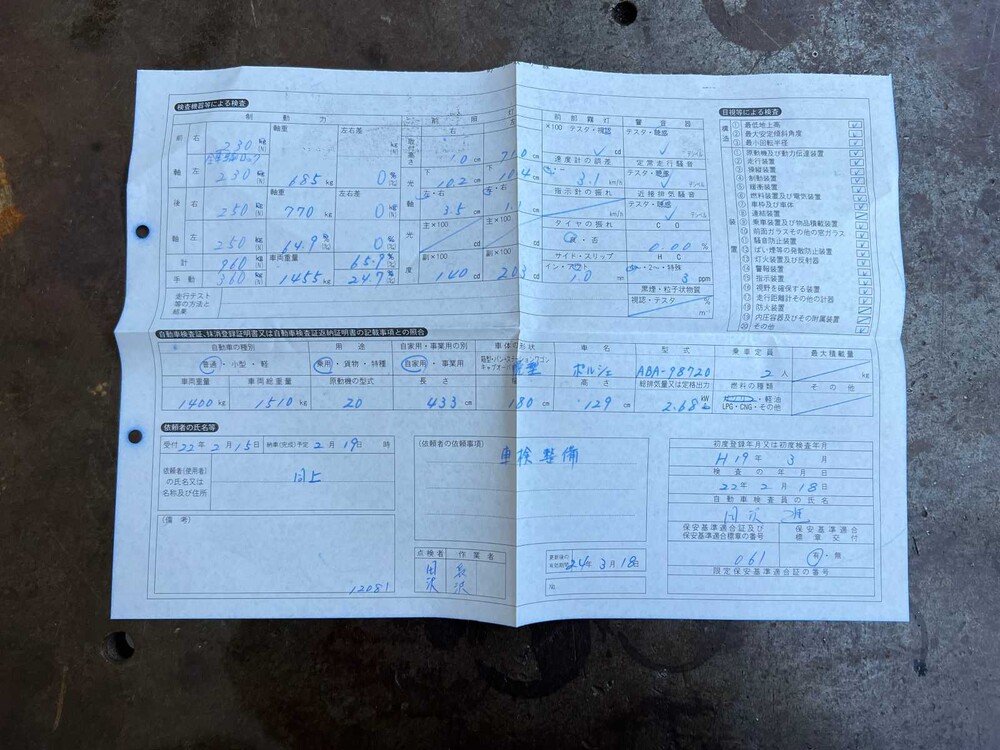 検査機器等による検査
制動力
前照灯
前部霧灯
警音器
軸重
左右差
×100 テスタ・視認
テスタ・聴感
前 右 230 kg (N)
全車輪ロック
軸 左 230 kg (N)
685 kg
0 % (%)
取付高さ 1.0 cm
71.0 cm
cd
デシベル
速度計の誤差
定常走行騒音
下 10.2 cm
3.1 km/h
テスタ・聴感
デシベル
指示計の振れ
近接排気騒音
後 右 250 kg (N)
軸重 770 kg
左右差 0 % (%)
左・右 3.5 cm
km/h
テスタ・聴感
デシベル
タイヤの振れ
CO
軸 左 250 kg (N)
64.9 % (%)
0 % (%)
主×100 cd
主×100 cd
良・否
0.00 %
サイド・スリップ
HC
計 960 kg (N)
車両重量 1455 kg
65.9 % (%)
副×100 140 cd
副×100 203 cd
イン・アウト 1.0 mm
3 ppm
手動 360 kg (N)
24.7 % (%)
黒煙・粒子状物質
視認・テスタ % m⁻¹
走行テスト等の方法と結果
目視等による検査
構造
① 最低地上高
② 最大安定傾斜角度
③ 最小回転半径
装置
① 原動機及び動力伝達装置
② 走行装置
③ 操縦装置
④ 制動装置
⑤ 緩衝装置
⑥ 燃料装置及び電気装置
⑦ 車枠及び車体
⑧ 連結装置
⑨ 乗車装置及び物品積載装置
⑩ 前面ガラスその他の窓ガラス
⑪ 騒音防止装置
⑫ ばい煙等の発散防止装置
⑬ 灯火装置及び反射器
⑭ 警報装置
⑮ 指示装置
⑯ 視野を確保する装置
⑰ 走行距離計その他の計器
⑱ 防火装置
⑲ 内圧容器及びその附属装置
⑳ その他
自動車検査証、抹消登録証明書又は自動車検査証返納証明書の記載事項との照合
自動車の種別
用途
自家用・事業用の別
車体の形状
車名
型式
乗車定員
最大積載量
普通・小型・軽
乗用・貨物・特種
自家用・事業用
箱型・バン・ステーションワゴン
キャブオーバ
ポルシェ
ABA-98720
2 人
kg
車両重量
車両総重量
原動機の型式
長さ
幅
高さ
総排気量又は定格出力
燃料の種類
その他
1400 kg
1510 kg
20
433 cm
180 cm
129 cm
2.68 kW
ガソリン・軽油
LPG・CNG・その他
依頼者の氏名等
受付 22年2月15日 納車(完成)予定 2月19日 時
依頼者(使用者)の氏名又は名称及び住所
同上
(備考)
12081
(依頼者の依頼事項)
車検整備
点検者
作業者
更新後の有効期間 24年3月18日
初度登録年月又は初度検査年月
H19年 3月
検査の年月日
22年 2月 18日
自動車検査員の氏名
保安基準適合証及び保安基準適合標章の番号
保安基準適合標章交付
061
有・無
限定保安基準適合証の番号